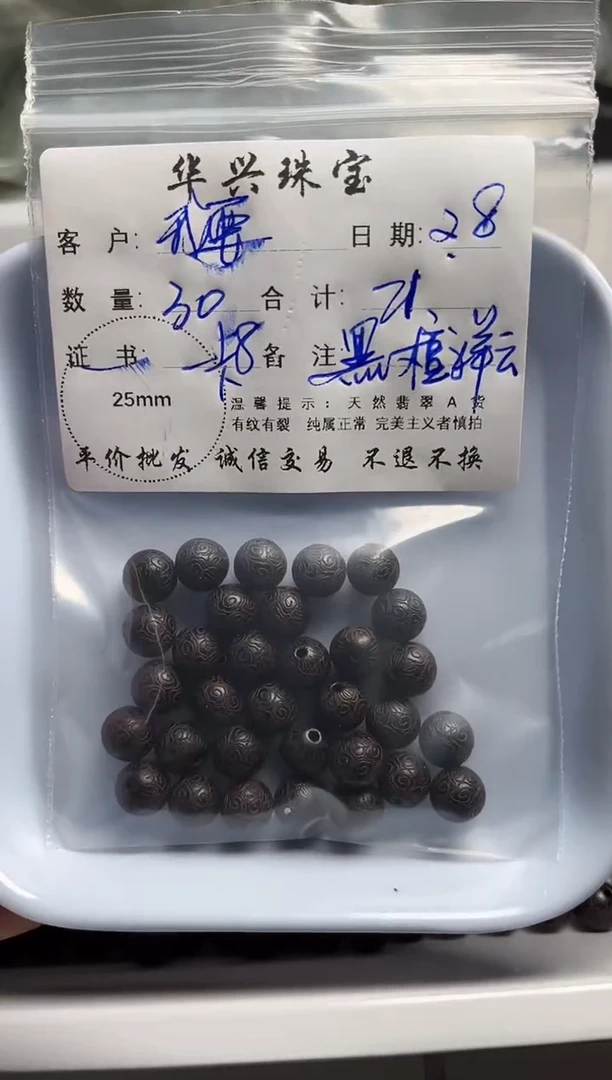 华兴珠宝
客 户: 日 期: 2.8
数 量: 30 合 计:
证 书: 备 注: 黑檀祥云
25mm
温馨提示:天然翡翠A货
有纹有裂 纯属正常 完美主义者慎拍
平价批发 诚信交易 不退不换